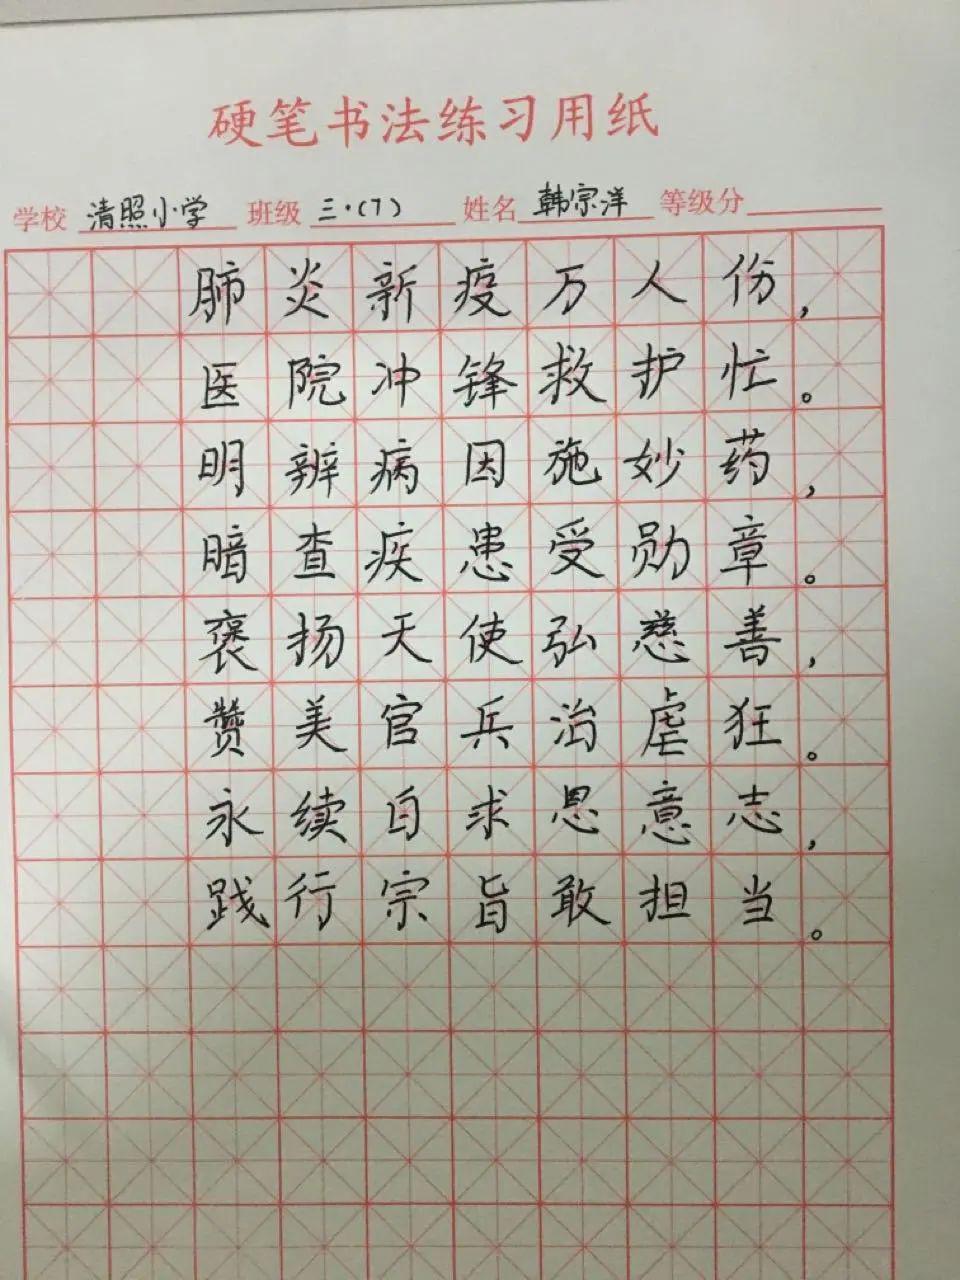 硬笔书法练习用纸
学校 清照小学 班级 三·(7) 姓名 韩宗洋 等级分
肺炎新疫万人份，
医院冲锋救护忙。
明辨病因施妙药，
暗查疾患受勋章。
褒扬天使弘慈善，
赞美官兵治虐狂。
永续自求恩意志，
践行宗旨敢担当。